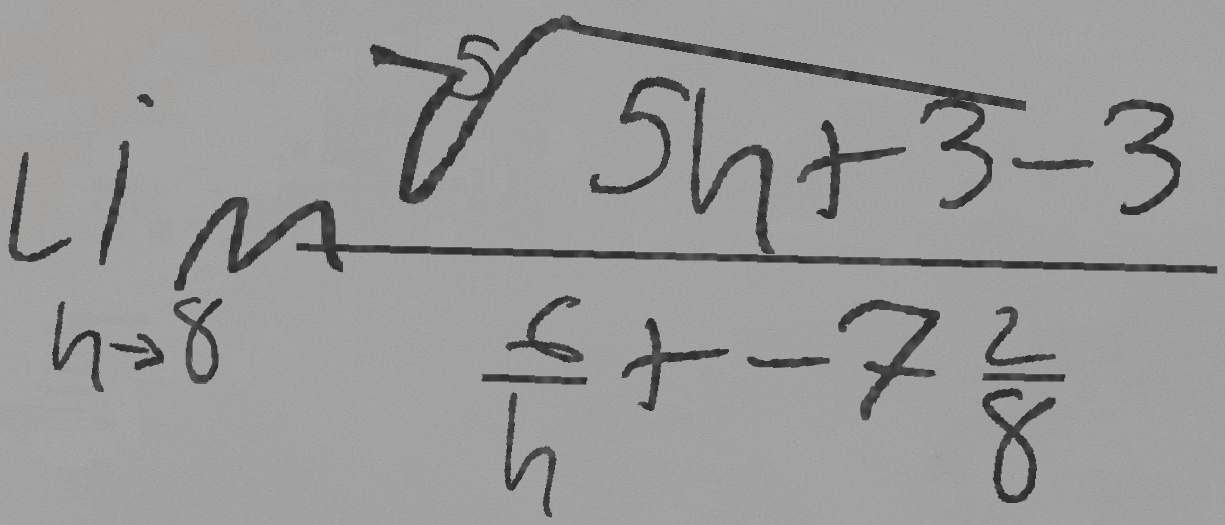 Lim h→8 \frac{\sqrt[5]{5h+3}-3}{\frac{6}{h}+-7\frac{2}{8}}